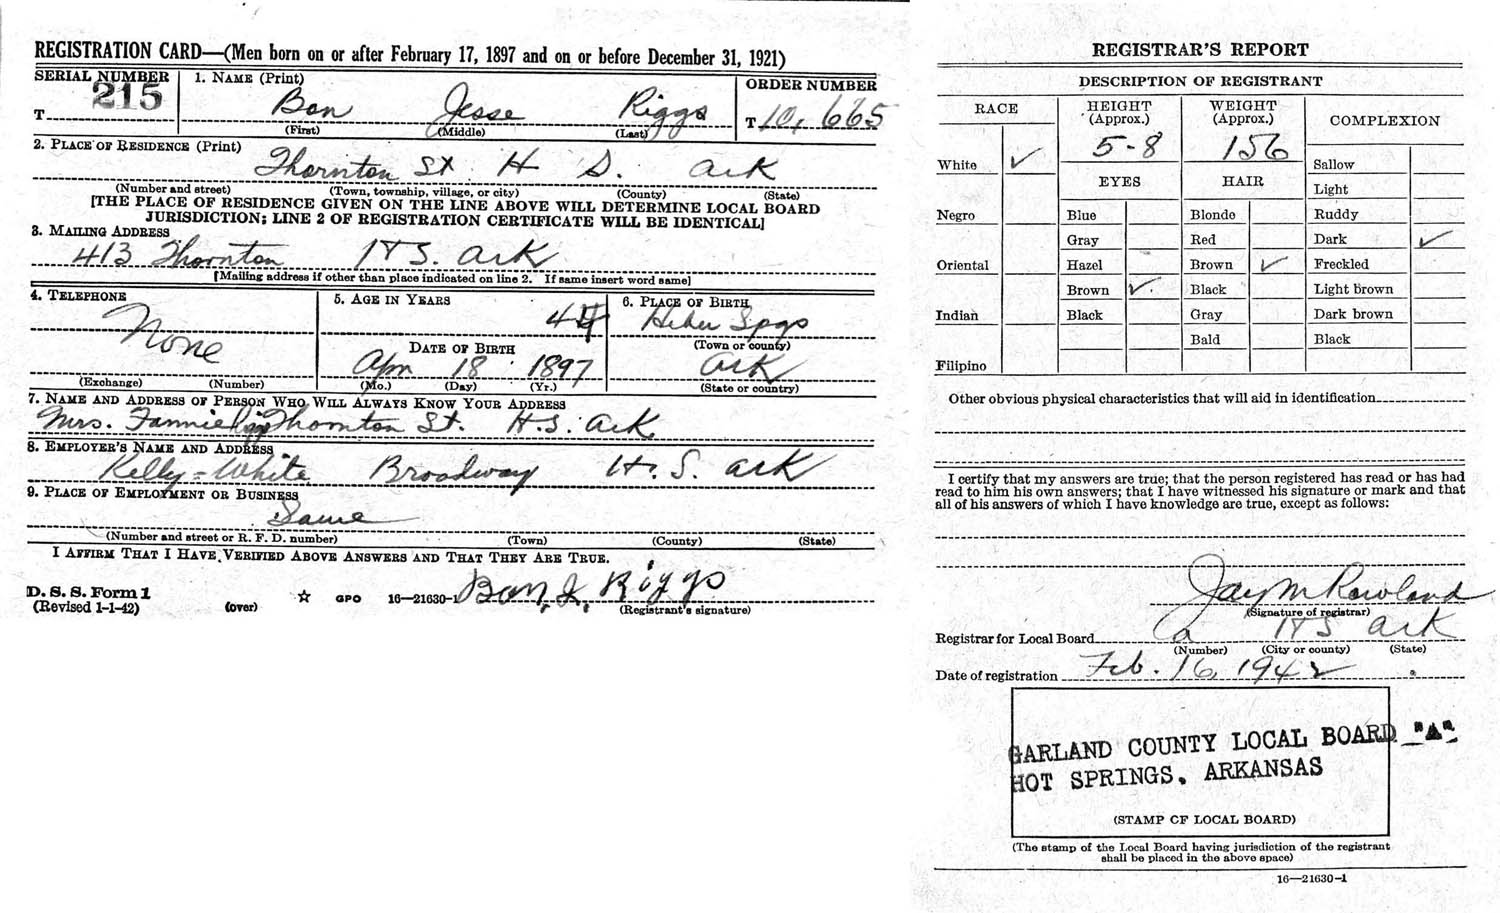 REGISTRATION CARD—(Men born on or after February 17, 1897 and on or before December 31, 1921)
SERIAL NUMBER
1. NAME (Print)
ORDER NUMBER
T 215
Ban Jesse Riggs
T 10,665
(First) (Middle) (Last)
2. PLACE OF RESIDENCE (Print)
Thornton St H S. Ark
(Number and street) (Town, township, village, or city) (County) (State)
[THE PLACE OF RESIDENCE GIVEN ON THE LINE ABOVE WILL DETERMINE LOCAL BOARD
JURISDICTION; LINE 2 OF REGISTRATION CERTIFICATE WILL BE IDENTICAL]
3. MAILING ADDRESS
413 Thornton H S. Ark
[Mailing address if other than place indicated on line 2. If same insert word same]
4. TELEPHONE
None
(Exchange) (Number)
5. AGE IN YEARS
44
DATE OF BIRTH
Apr 18 1897
(Mo.) (Day) (Yr.)
6. PLACE OF BIRTH
Heber Spgs
(Town or county)
Ark
(State or country)
7. NAME AND ADDRESS OF PERSON WHO WILL ALWAYS KNOW YOUR ADDRESS
Mrs. Fannie Riggs Thornton St. H.S. Ark
8. EMPLOYER'S NAME AND ADDRESS
Kelly-White Broadway H. S. Ark
9. PLACE OF EMPLOYMENT OR BUSINESS
Same
(Number and street or R. F. D. number) (Town) (County) (State)
I AFFIRM THAT I HAVE VERIFIED ABOVE ANSWERS AND THAT THEY ARE TRUE.
D. S. S. Form 1
(Revised 1-1-42) (over) ☆ GPO 16—21630-1
Ban. J. Riggs
(Registrant's signature)
REGISTRAR'S REPORT
DESCRIPTION OF REGISTRANT
RACE
HEIGHT (Approx.)
WEIGHT (Approx.)
COMPLEXION
White ✓
5-8
156
Sallow
EYES HAIR
Light
Negro
Blue
Blonde
Ruddy
Gray
Red
Dark ✓
Oriental
Hazel
Brown ✓
Freckled
Brown ✓
Black
Light brown
Indian
Black
Gray
Dark brown
Bald
Black
Filipino
Other obvious physical characteristics that will aid in identification
I certify that my answers are true; that the person registered has read or has had
read to him his own answers; that I have witnessed his signature or mark and that
all of his answers of which I have knowledge are true, except as follows:
Jay M Rowland
(Signature of registrar)
Registrar for Local Board a HS Ark
(Number) (City or county) (State)
Date of registration Feb. 16, 1942
GARLAND COUNTY LOCAL BOARD "A"
HOT SPRINGS, ARKANSAS
(STAMP OF LOCAL BOARD)
(The stamp of the Local Board having jurisdiction of the registrant
shall be placed in the above space)
16—21630-1